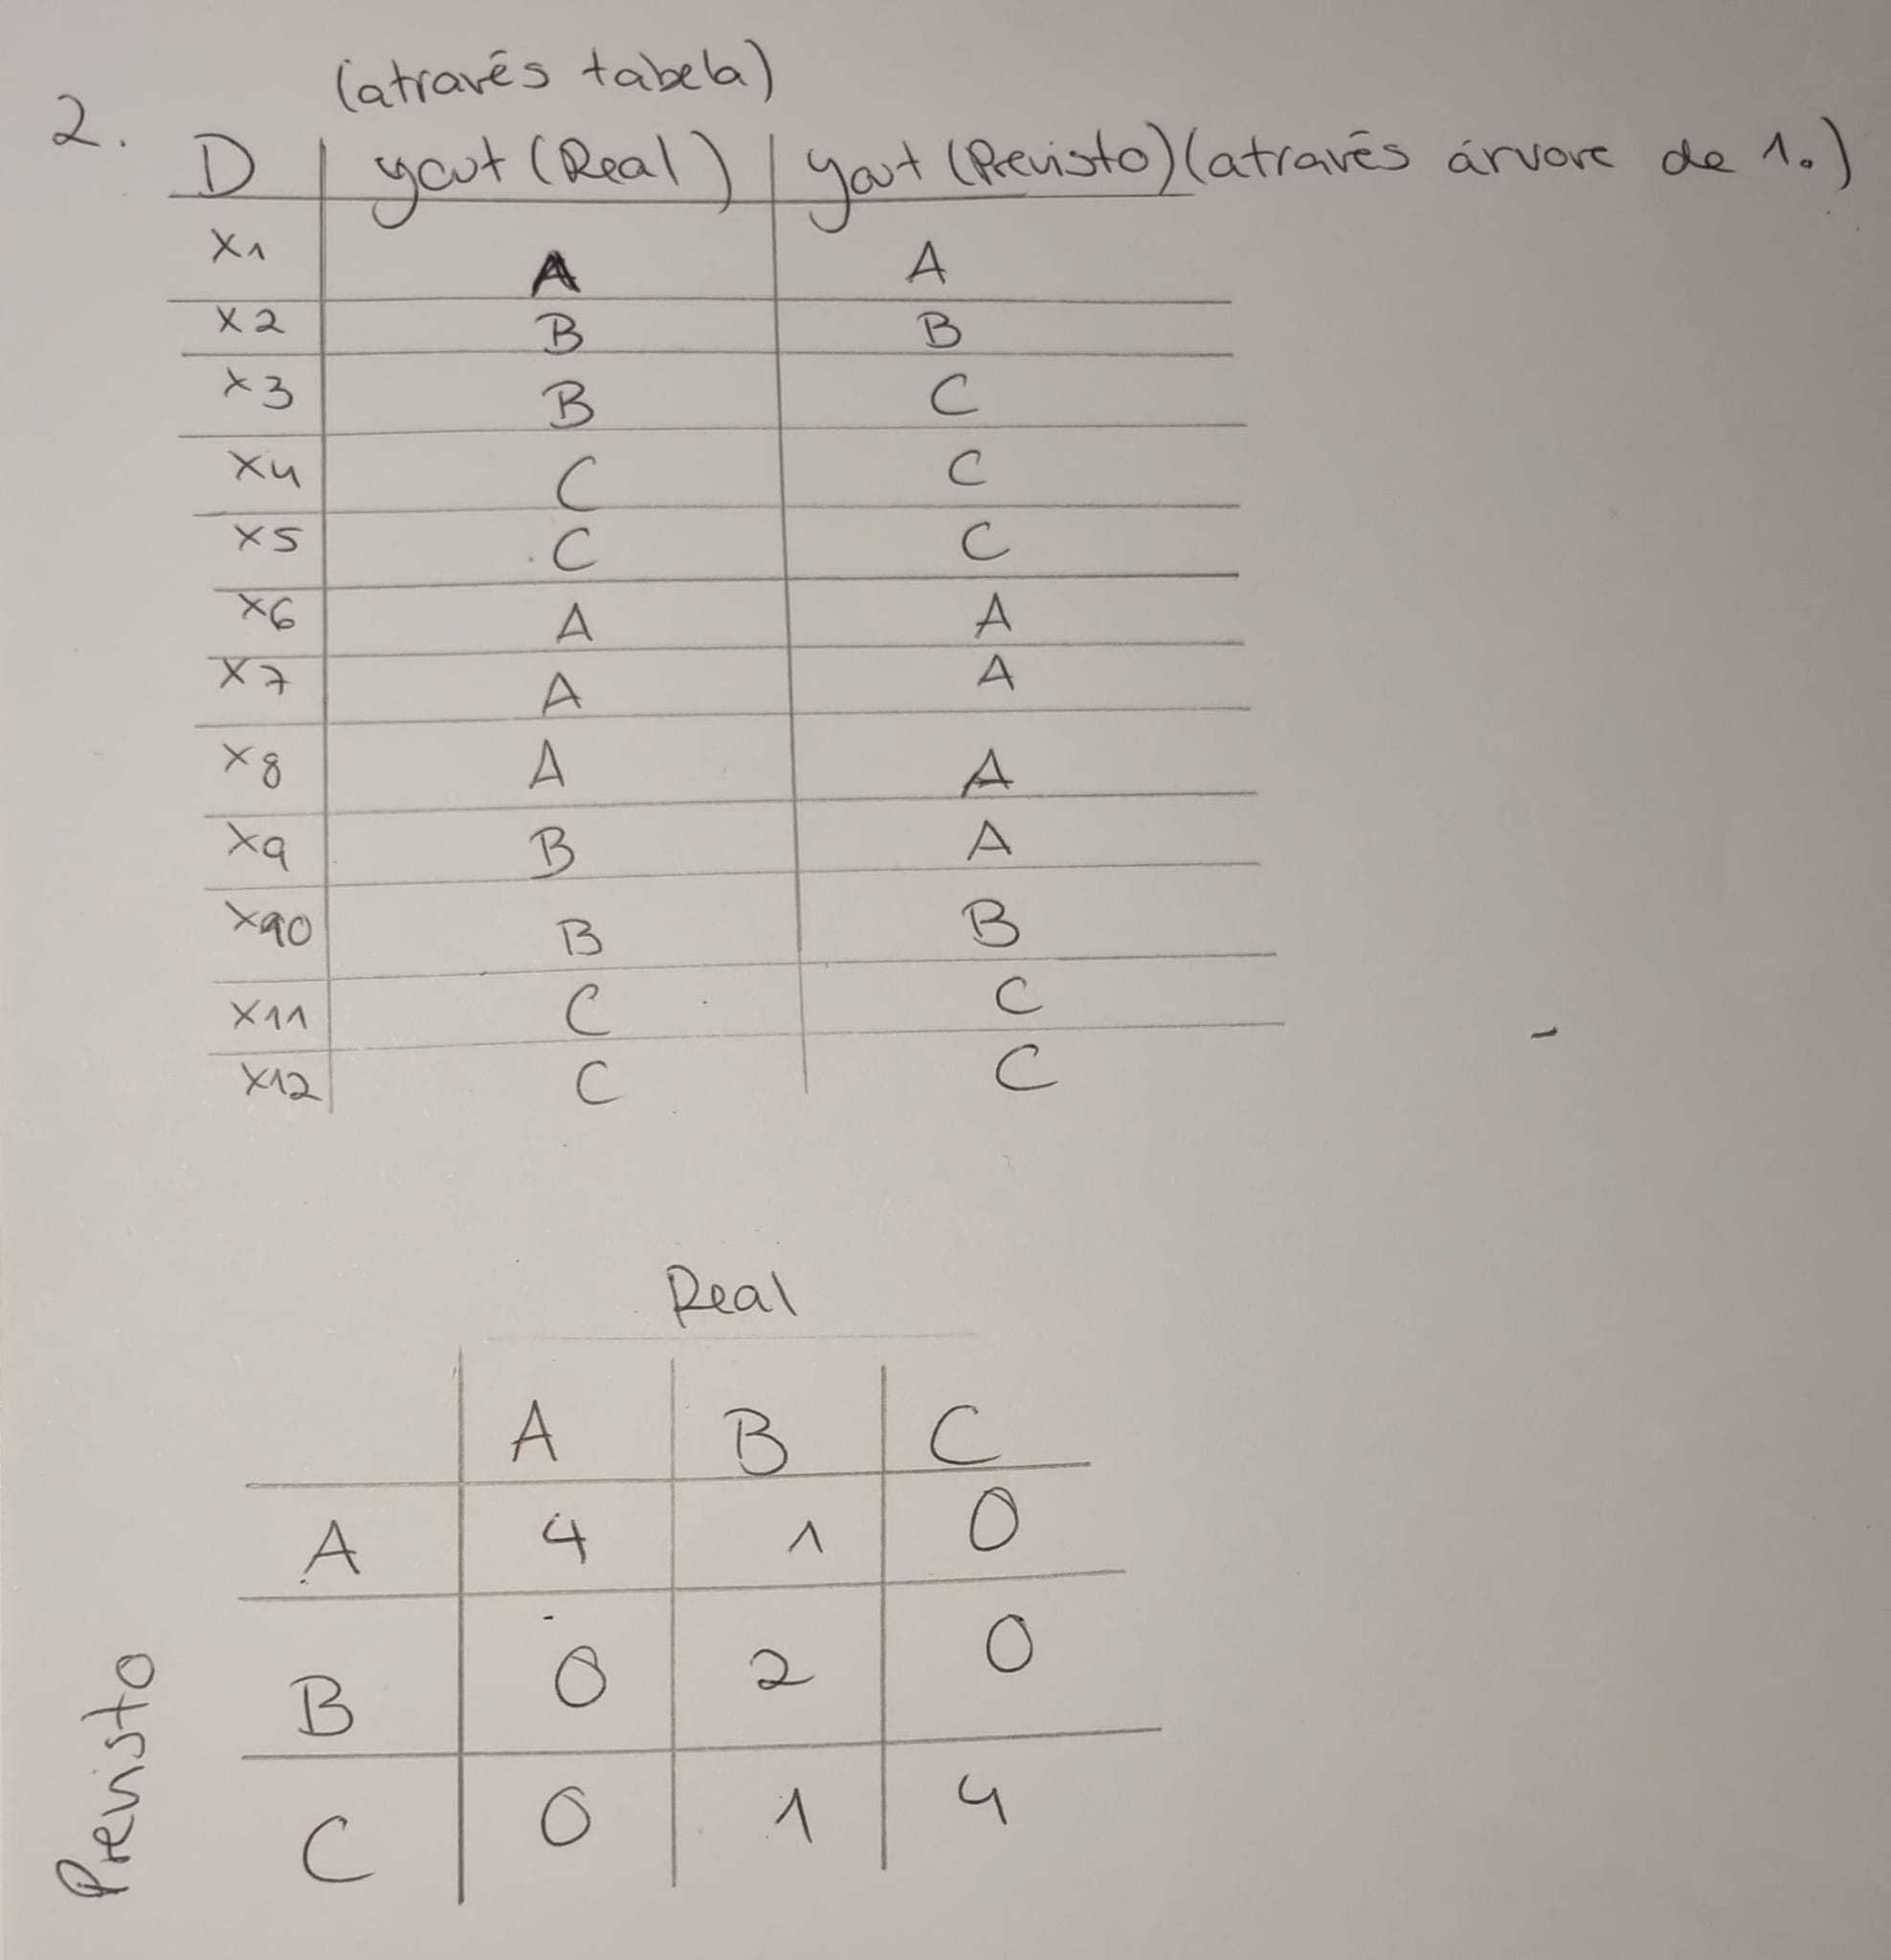 (através tabela)
2. D yout (Real) yout (Previsto) (através árvore de 1.)
x1 A A
x2 B B
x3 B C
x4 C C
x5 C C
x6 A A
x7 A A
x8 A A
x9 B A
x10 B B
x11 C C
x12 C C
Real
A B C
A 4 1 0
B 0 2 0
C 0 1 4
Previsto